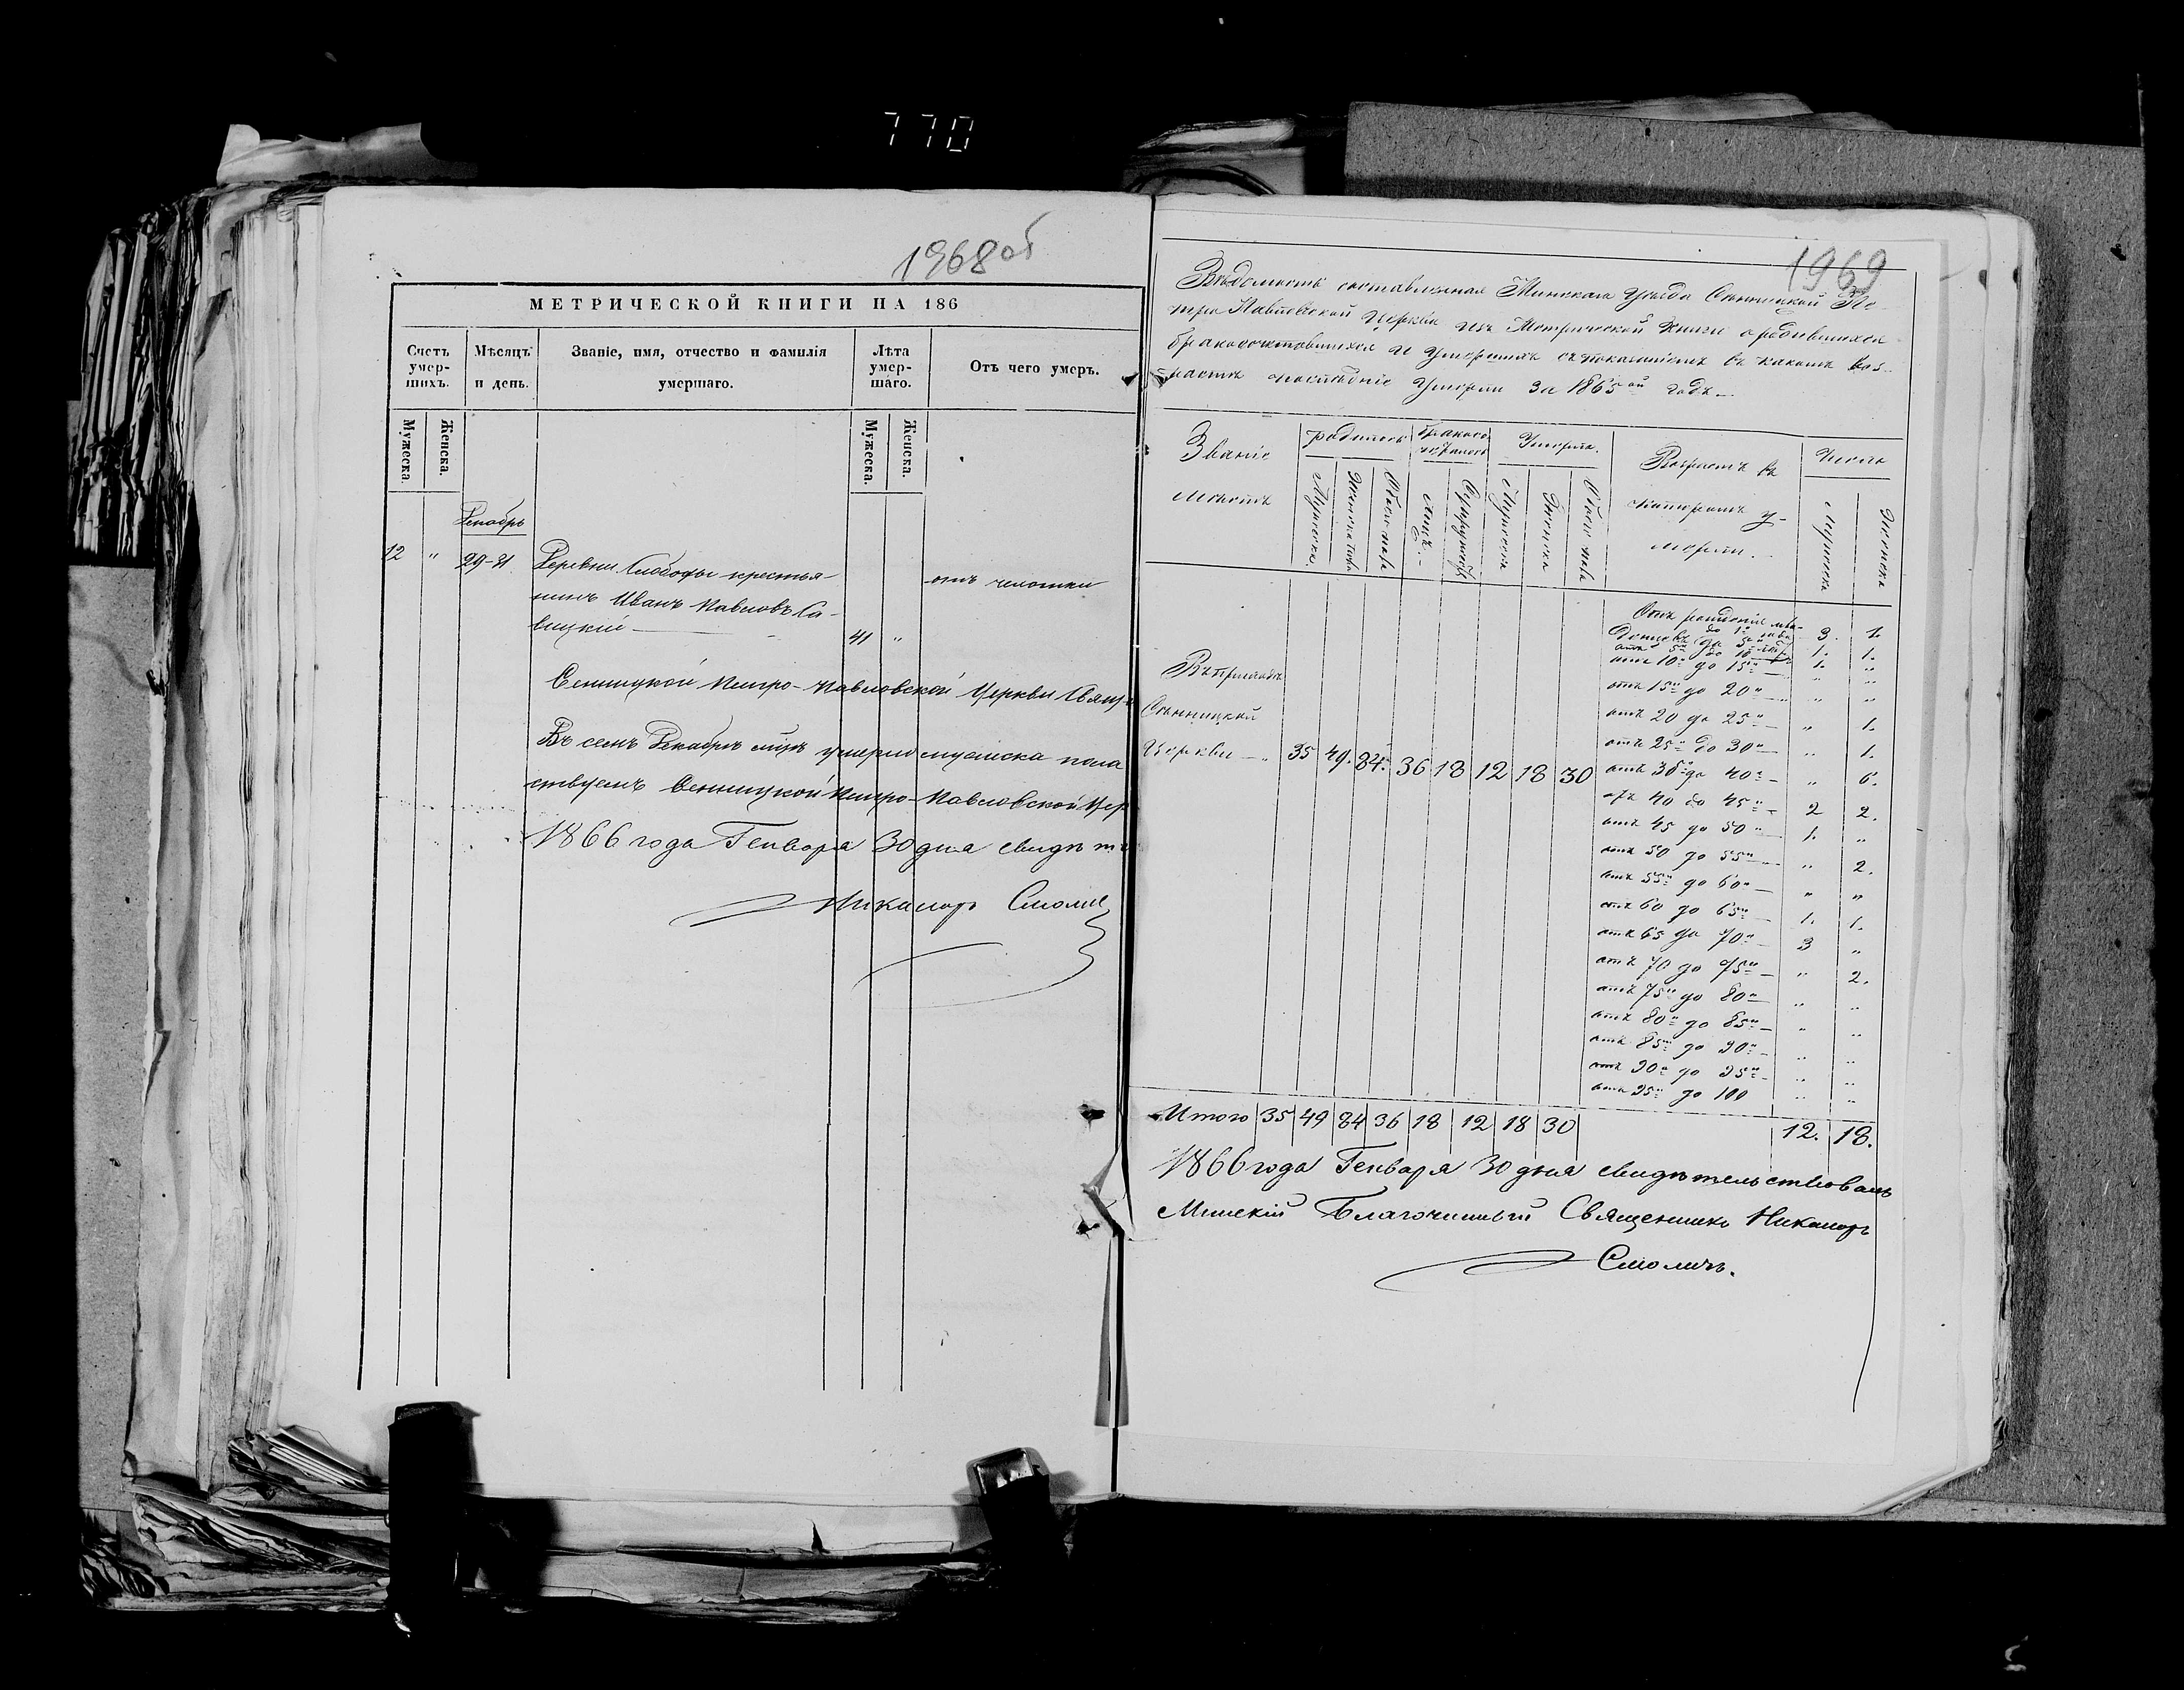 770
1968об
МЕТРИЧЕСКОЙ КНИГИ НА 186
Счетъ умер-шихъ.
Мѣсяцъ и день.
Званіе, имя, отчество и фамилія умершаго.
Лѣта умер-шаго.
Отъ чего умеръ.
Мужеска.
Женска.
Мужеска.
Женска.
Декабрь
12 " 29-31 Деревни Слободы крестья-
нинъ Иванъ Павловъ Са-
вицкій 41 "
отъ чахотки
Сенницкой Петро-Павловской Церкви Свящ
Въ семъ Декабрѣ мцѣ умерло мужеска пола
Сенницкой Петро-Павловской Цер
1866 года Генваря 30 дня свидѣте
Никаноръ Смолич
1969
Вѣдомость составленная Минскаго Уѣзда Сѣнницкой Пе-
тро Павловской Церкви изъ Метрической Книги о родившихся
бракосочетавшихся и Умершихъ съ показаніемъ въ какомъ воз-
растѣ послѣдніе Умерли за 1865ой годъ
Званіе
мѣстъ
родилось
Умерло.
Возрастъ въ
которомъ у-
мерли.
Число
Мужеска
Женска
Обоего пола
Лицъ
Супружествъ
Мужеска
Женска
Обоего пола
Мужеска
Женска
Въ приходѣ
Сѣнницкой
Церкви 35 49. 84. 36 18 12 18 30
Отъ рожденія
3. 1.
1. 1.
1. "
отъ 10 до 15 " "
отъ 15 до 20 " "
отъ 20 до 25 " 1.
отъ 25 до 30 " 1.
отъ 30 до 40 " 6.
отъ 40 до 45 2 2.
отъ 45 до 50 1. "
отъ 50 до 55 " 2.
отъ 55 до 60 " "
отъ 60 до 65 1. 1.
отъ 65 до 70 3 "
отъ 70 до 75 " 2.
отъ 75 до 80 " "
отъ 80 до 85 " "
отъ 85 до 90 " "
отъ 90 до 95 " "
отъ 95 до 100 " "
Итого 35 49 84 36 18 12 18 30 12. 18.
1866 года Генваря 30 дня свидѣтельствовалъ
Минскій Благочинный Священникъ Никаноръ
Смоличъ.